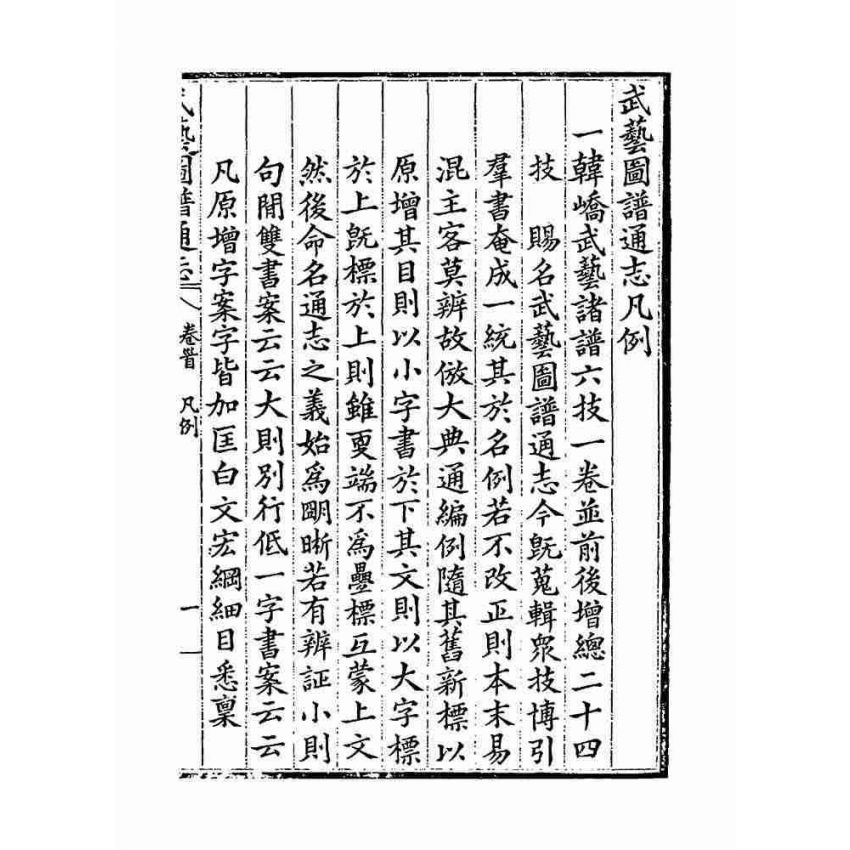 武藝圖譜通志凡例
一韓嶠武藝諸譜六技一卷並前後增總二十四
技　賜名武藝圖譜通志今旣蒐輯衆技博引
羣書奄成一統其於名例若不改正則本末易
混主客莫辨故倣大典通編例隨其舊新標以
原增其目則以小字書於下其文則以大字標
於上旣標於上則雖更端不爲疊標互蒙上文
然後命名通志之義始爲朙晰若有辨証小則
句閒雙書案云云大則別行低一字書案云云
凡原增字案字皆加匡白文宏綱細目悉稟
武藝圖譜通志 卷首 凡例 一